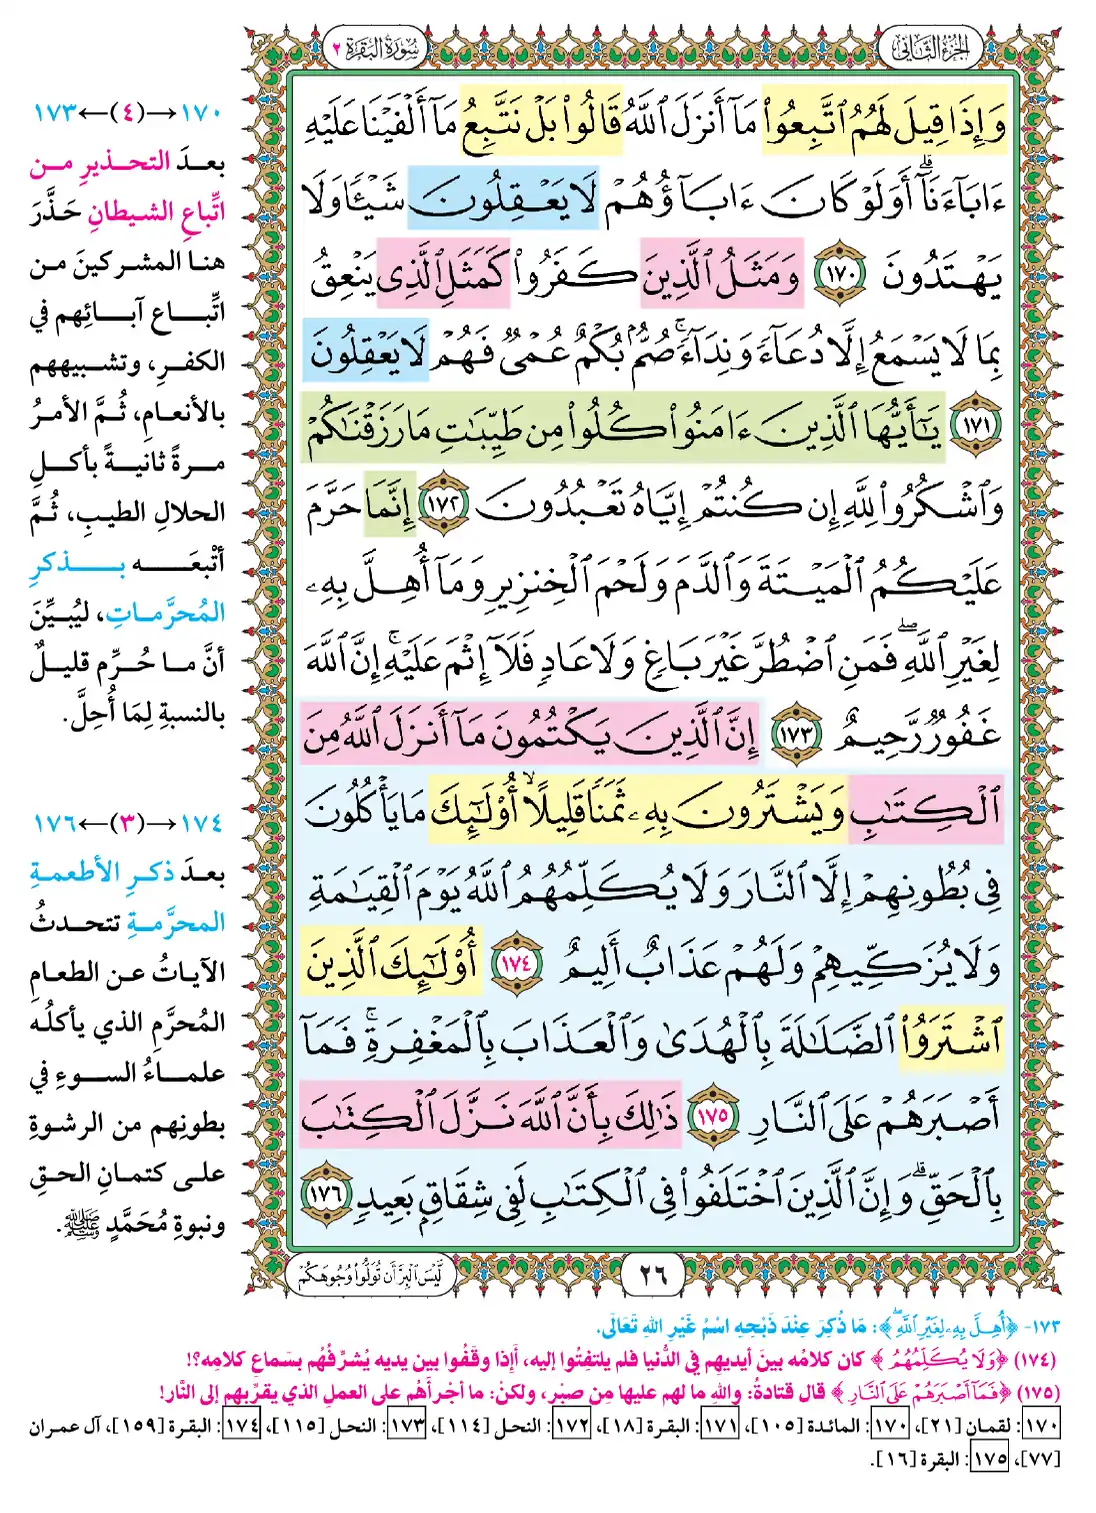 الجزء الثاني
سورة البقرة ٢
وَإِذَا قِيلَ لَهُمُ ٱتَّبِعُوا۟ مَآ أَنزَلَ ٱللَّهُ قَالُوا۟ بَلْ نَتَّبِعُ مَآ أَلْفَيْنَا عَلَيْهِ
ءَابَآءَنَآ ۗ أَوَلَوْ كَانَ ءَابَآؤُهُمْ لَا يَعْقِلُونَ شَيْـًٔا وَلَا
يَهْتَدُونَ ١٧٠ وَمَثَلُ ٱلَّذِينَ كَفَرُوا۟ كَمَثَلِ ٱلَّذِى يَنْعِقُ
بِمَا لَا يَسْمَعُ إِلَّا دُعَآءً وَنِدَآءً ۚ صُمٌّۢ بُكْمٌ عُمْىٌ فَهُمْ لَا يَعْقِلُونَ
١٧١ يَـٰٓأَيُّهَا ٱلَّذِينَ ءَامَنُوا۟ كُلُوا۟ مِن طَيِّبَـٰتِ مَا رَزَقْنَـٰكُمْ
وَٱشْكُرُوا۟ لِلَّهِ إِن كُنتُمْ إِيَّاهُ تَعْبُدُونَ ١٧٢ إِنَّمَا حَرَّمَ
عَلَيْكُمُ ٱلْمَيْتَةَ وَٱلدَّمَ وَلَحْمَ ٱلْخِنزِيرِ وَمَآ أُهِلَّ بِهِۦ
لِغَيْرِ ٱللَّهِ ۖ فَمَنِ ٱضْطُرَّ غَيْرَ بَاغٍ وَلَا عَادٍ فَلَآ إِثْمَ عَلَيْهِ ۚ إِنَّ ٱللَّهَ
غَفُورٌ رَّحِيمٌ ١٧٣ إِنَّ ٱلَّذِينَ يَكْتُمُونَ مَآ أَنزَلَ ٱللَّهُ مِنَ
ٱلْكِتَـٰبِ وَيَشْتَرُونَ بِهِۦ ثَمَنًا قَلِيلًا ۙ أُو۟لَـٰٓئِكَ مَا يَأْكُلُونَ
فِى بُطُونِهِمْ إِلَّا ٱلنَّارَ وَلَا يُكَلِّمُهُمُ ٱللَّهُ يَوْمَ ٱلْقِيَـٰمَةِ
وَلَا يُزَكِّيهِمْ وَلَهُمْ عَذَابٌ أَلِيمٌ ١٧٤ أُو۟لَـٰٓئِكَ ٱلَّذِينَ
ٱشْتَرَوُا۟ ٱلضَّلَـٰلَةَ بِٱلْهُدَىٰ وَٱلْعَذَابَ بِٱلْمَغْفِرَةِ ۚ فَمَآ
أَصْبَرَهُمْ عَلَى ٱلنَّارِ ١٧٥ ذَٰلِكَ بِأَنَّ ٱللَّهَ نَزَّلَ ٱلْكِتَـٰبَ
بِٱلْحَقِّ ۗ وَإِنَّ ٱلَّذِينَ ٱخْتَلَفُوا۟ فِى ٱلْكِتَـٰبِ لَفِى شِقَاقٍۭ بَعِيدٍ ١٧٦
٢٦
لَّيْسَ ٱلْبِرَّ أَن تُوَلُّوا۟ وُجُوهَكُمْ
١٧٠→(٤)←١٧٣
بعدَ التحذيرِ من
اتِّباعِ الشيطانِ حَذَّرَ
هنا المشركينَ من
اتِّباع آبائِهم في
الكفرِ، وتشبيههم
بالأنعامِ، ثُمَّ الأمرُ
مرةً ثانيةً بأكلِ
الحلالِ الطيبِ، ثُمَّ
أتْبعَه بذكرِ
المُحرَّماتِ، ليُبيِّنَ
أنَّ ما حُرِّم قليلٌ
بالنسبةِ لِمَا أُحِلَّ.
١٧٤→(٣)←١٧٦
بعدَ ذكرِ الأطعمةِ
المحرَّمةِ تتحدثُ
الآياتُ عن الطعامِ
المُحرَّمِ الذي يأكلُه
علماءُ السوءِ في
بطونِهم من الرشوةِ
على كتمانِ الحقِ
ونبوةِ مُحمَّدٍ ﷺ.
١٧٣- ﴿أُهِلَّ بِهِۦ لِغَيْرِ ٱللَّهِ ۖ﴾: مَا ذُكِرَ عِنْدَ ذَبْحِهِ اسْمُ غَيْرِ اللهِ تَعَالَى.
(١٧٤) ﴿وَلَا يُكَلِّمُهُمُ﴾ كان كلامُه بينَ أيديهِم في الدُّنيا فلم يلتفتُوا إليه، أَإِذا وقَفُوا بين يديه يُشرِّفُهُم بسَماعِ كلامِه؟!
(١٧٥) ﴿فَمَآ أَصْبَرَهُمْ عَلَى ٱلنَّارِ﴾ قال قتادةُ: واللهِ ما لهم عليها مِن صبْرٍ، ولكنْ: ما أجْرأَهُم على العملِ الذي يقرِّبهم إلى النَّار!
١٧٠: لقمان [٢١]، ١٧٠: المائدة [١٠٥]، ١٧١: البقرة [١٨]، ١٧٢: النحل [١١٤]، ١٧٣: النحل [١١٥]، ١٧٤: البقرة [١٥٩]، آل عمران
[٧٧]، ١٧٥: البقرة [١٦].